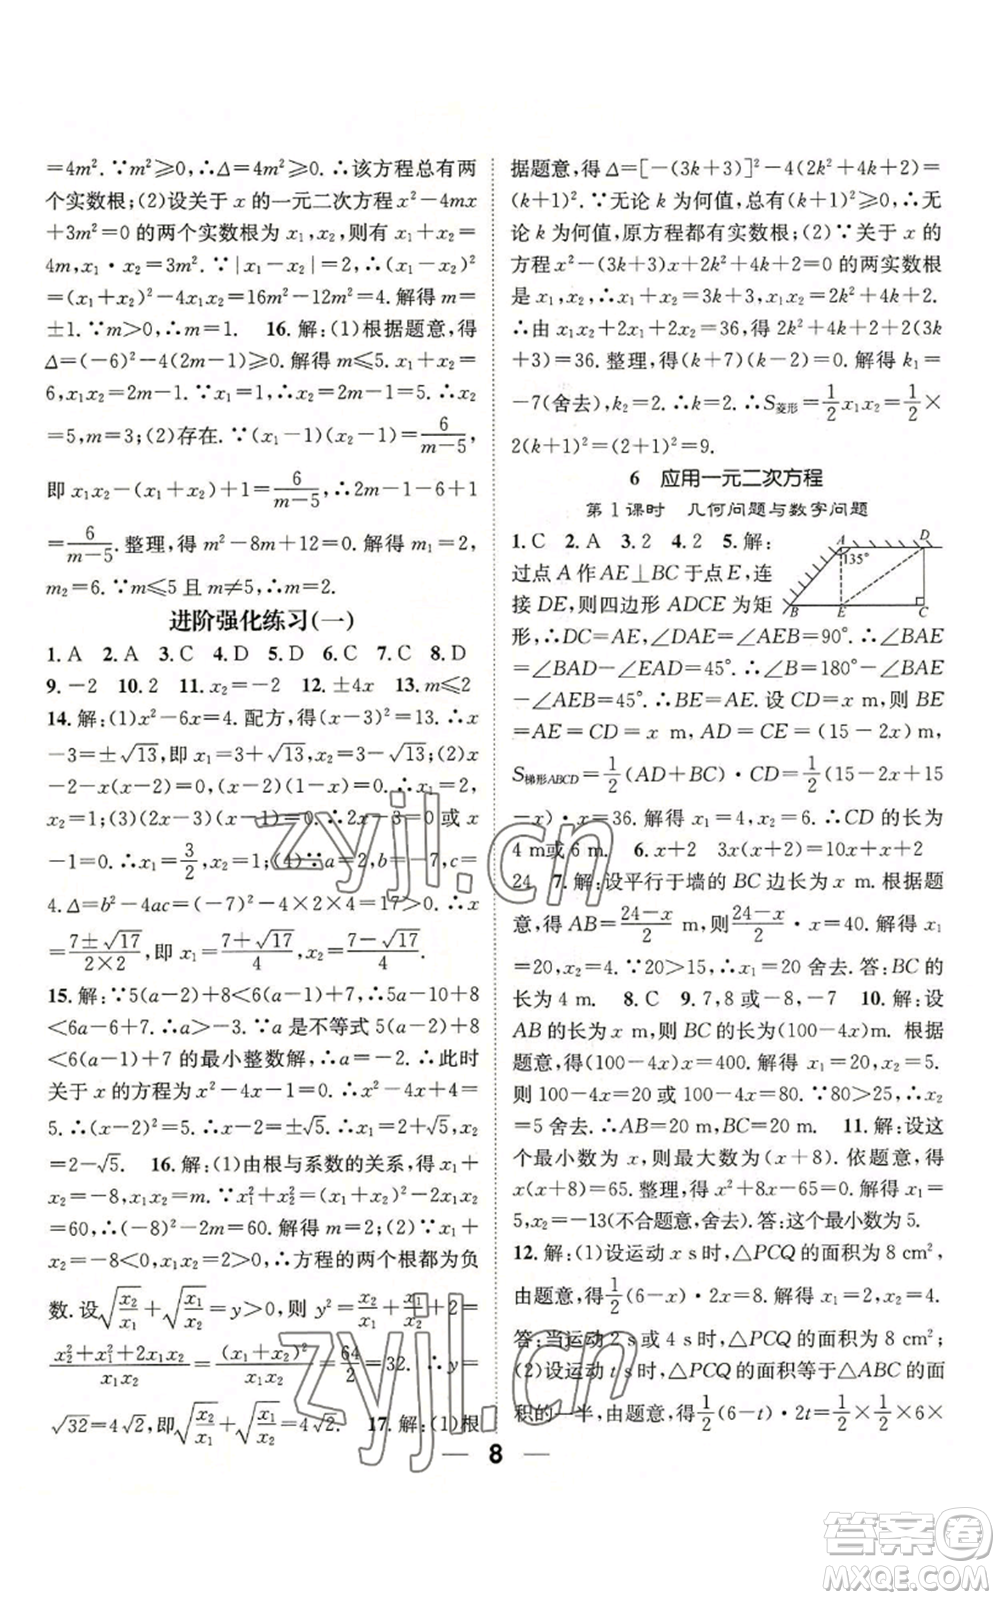 =4m². ∵m²≥0,∴Δ=4m²≥0.∴该方程总有两
个实数根;(2)设关于 x 的一元二次方程 x²-4mx
+3m²=0 的两个实数根为 x₁,x₂,则有 x₁+x₂=
4m,x₁·x₂=3m². ∵|x₁-x₂|=2,∴(x₁-x₂)²
=(x₁+x₂)²-4x₁x₂=16m²-12m²=4. 解得 m=
±1. ∵m>0,∴m=1. 16. 解:(1)根据题意,得
Δ=(-6)²-4(2m-1)≥0. 解得 m≤5. x₁+x₂=
6,x₁x₂=2m-1. ∵x₁=1,∴x₂=2m-1=5.∴x₂
=5,m=3;(2)存在. ∵(x₁-1)(x₂-1)=6/(m-5),
即 x₁x₂-(x₁+x₂)+1=6/(m-5).∴2m-1-6+1
=6/(m-5). 整理,得 m²-8m+12=0. 解得 m₁=2,
m₂=6. ∵m≤5 且 m≠5,∴m=2.
进阶强化练习(一)
1. A 2. A 3. C 4. D 5. D 6. C 7. C 8. D
9. -2 10. 2 11. x₂=-2 12. ±4x 13. m≤2
14. 解:(1)x²-6x=4. 配方,得(x-3)²=13.∴x
-3=±√13,即 x₁=3+√13,x₂=3-√13;(2)x(x
-2)-(x-2)=0,(x-1)(x-2)=0.∴x₁=2,x₂
=1;(3)(2x-3)(x-1)=0.∴2x-3=0 或 x
-1=0.∴x₁=3/2,x₂=1;(4)∵a=2,b=-7,c=
4. Δ=b²-4ac=(-7)²-4×2×4=17>0,∴x
=(7±√17)/(2×2),即 x₁=(7+√17)/4,x₂=(7-√17)/4.
15. 解:∵5(a-2)+8<6(a-1)+7,∴5a-10+8
<6a-6+7.∴a>-3. ∵a 是不等式 5(a-2)+8
<6(a-1)+7 的最小整数解,∴a=-2.∴此时
关于 x 的方程为 x²-4x-1=0.∴x²-4x+4=
5.∴(x-2)²=5.∴x-2=±√5.∴x₁=2+√5,x₂
=2-√5. 16. 解:(1)由根与系数的关系,得 x₁+
x₂=-8,x₁x₂=m. ∵x₁²+x₂²=(x₁+x₂)²-2x₁x₂
=60,∴(-8)²-2m=60. 解得 m=2;(2)∵x₁+
x₂=-8<0,x₁x₂=2>0,∴方程的两个根都为负
数. 设√(x₂/x₁)+√(x₁/x₂)=y>0,则 y²=x₂/x₁+x₁/x₂+2=
(x₂²+x₁²+2x₁x₂)/(x₁x₂)=(x₁+x₂)²/(x₁x₂)=64/2=32.∴y=
√32=4√2,即√(x₂/x₁)+√(x₁/x₂)=4√2. 17. 解:(1)根
据题意,得 Δ=[-(3k+3)]²-4(2k²+4k+2)=
(k+1)². ∵无论 k 为何值,总有(k+1)²≥0,∴无
论 k 为何值,原方程都有实数根;(2)∵关于 x 的
方程 x²-(3k+3)x+2k²+4k+2=0 的两实数根
是 x₁,x₂,∴x₁+x₂=3k+3,x₁x₂=2k²+4k+2.
∴由 x₁x₂+2x₁+2x₂=36,得 2k²+4k+2+2(3k
+3)=36. 整理,得(k+7)(k-2)=0. 解得 k₁=
-7(舍去),k₂=2.∴k=2.∴S菱形=1/2x₁x₂=1/2×
2(k+1)²=(2+1)²=9.
6 应用一元二次方程
第 1 课时 几何问题与数字问题
1. C 2. A 3. 2 4. 2 5. 解:
过点 A 作 AE⊥BC 于点 E,连
接 DE,则四边形 ADCE 为矩
A D 135° B E C
形,∴DC=AE,∠DAE=∠AEB=90°.∴∠BAE
=∠BAD-∠EAD=45°.∴∠B=180°-∠AEB
-∠BAE=45°.∴BE=AE. 设 CD=x m,则 BE
=AE=CD=x m,AD=CE=(15-2x)m,
S梯形ABCD=1/2(AD+BC)·CD=1/2(15-2x+15
-x)·x=36. 解得 x₁=4,x₂=6.∴CD 的长为
4 m或 6 m. 6. x+2 3x(x+2)=10x+x+2
24 7. 解:设平行于墙的 BC 边长为 x m. 根据题
意,得 AB=(24-x)/2 m,则(24-x)/2·x=40. 解得 x₁
=20,x₂=4. ∵20>15,∴x=20 舍去. 答:BC 的
长为 4 m. 8. C 9. 7,8 或-8,-7 10. 解:设
AB 的长为 x m,则 BC 的长为(100-4x)m. 根据
题意,得(100-4x)x=400. 解得 x₁=20,x₂=5.
则 100-4x=20 或 100-4x=80. ∵80>25,∴x₂
=5 舍去.∴AB=20 m,BC=20 m. 11. 解:设这
个最小数为 x,则最大数为(x+8). 依题意,得
x(x+8)=65. 整理,得 x²+8x-65=0. 解得 x₁=
5,x₂=-13(不合题意,舍去). 答:这个最小数为 5.
12. 解:(1)设运动 x s时,△PCQ 的面积为 8 cm²,
由题意,得1/2(6-x)·2x=8. 解得 x₁=2,x₂=4.
答:当运动 2 s或 4 s时,△PCQ 的面积为 8 cm²;
(2)设运动 t s时,△PCQ 的面积等于△ABC 的面
积的一半,由题意,得1/2(6-t)·2t=1/2×1/2×6×
8
zyjl.cn
zyjl.cn
答案圈
MXQE.COM